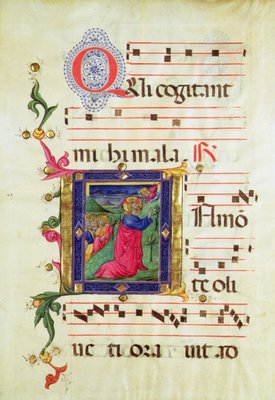 QUi cogitant
michi mala. ℟
IN mō
te oli
ue ti ora uit ad